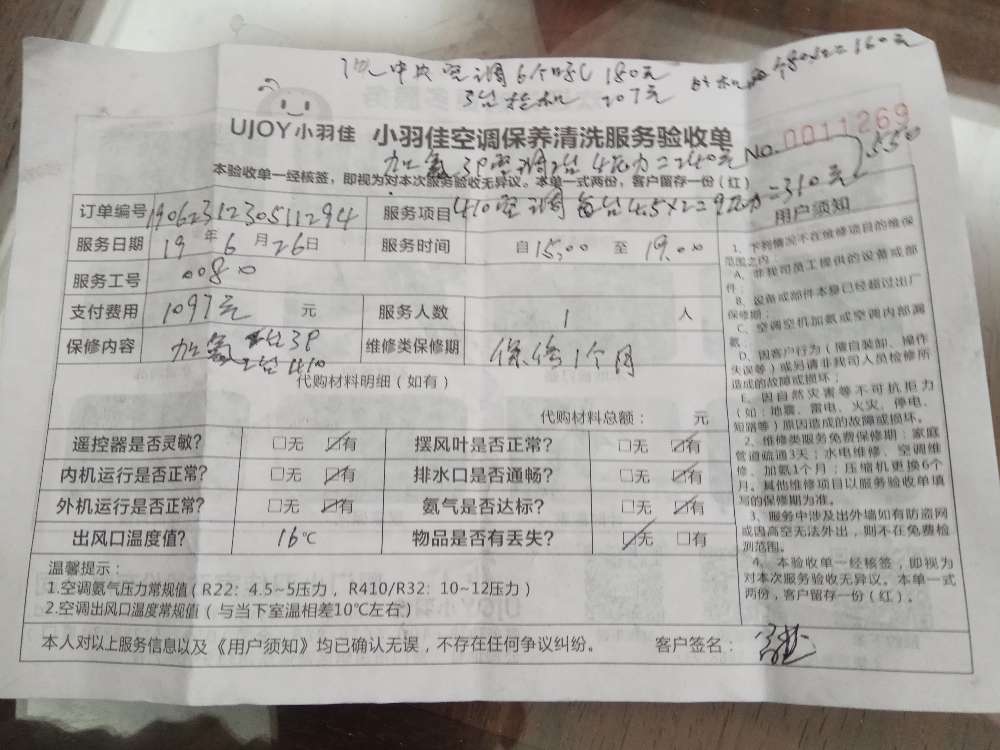 中央空调6个 180元
207元 160元
UJOY小羽佳 小羽佳空调保养清洗服务验收单 No. 0011269
加氨 3P空调2台 =240元 550
本验收单一经核签，即视为对本次服务验收无异议。本单一式两份，客户留存一份（红） =310元
订单编号 1906231230511294 服务项目 410空调每台4.5×2=9
服务日期 19年6月26日 服务时间 自15:00至19:00
服务工号 0080
支付费用 1097元 元 服务人数 1 人
保修内容 加氨 3P 410 维修类保修期 保修1个月
代购材料明细（如有）
代购材料总额： 元
遥控器是否灵敏? □无 ☑有 摆风叶是否正常? □无 ☑有
内机运行是否正常? □无 ☑有 排水口是否通畅? □无 ☑有
外机运行是否正常? □无 ☑有 氨气是否达标? □无 ☑有
出风口温度值? 16℃ 物品是否有丢失? ☑无 □有
温馨提示：
1.空调氨气压力常规值（R22：4.5~5压力，R410/R32：10~12压力）
2.空调出风口温度常规值（与当下室温相差10℃左右）
本人对以上服务信息以及《用户须知》均已确认无误，不存在任何争议纠纷。 客户签名：
用户须知
1、下列情况不在维修项目的维保
范围之内：
A、非我司员工提供的设备或部
件；
B、设备或部件本身已经超过出厂
保修期；
C、空调空机加氨或空调内部漏
氨；
D、因客户行为（擅自装卸、操作
失误等）或另请非我司人员检修所
造成的故障或损坏；
E、因自然灾害等不可抗拒力
（如：地震、雷电、火灾、停电、
短路等）原因造成的故障或损坏。
2、维修类服务免费保修期：家庭
管道疏通3天；水电维修、空调维
修、加氨1个月；压缩机更换6个
月。其他维修项目以服务验收单填
写的保修期为准。
3、服务中涉及出外墙如有防盗网
或因高空无法外出，则不在免费检
测范围。
4、本验收单一经核签，即视为
对本次服务验收无异议。本单一式
两份，客户留存一份（红）。